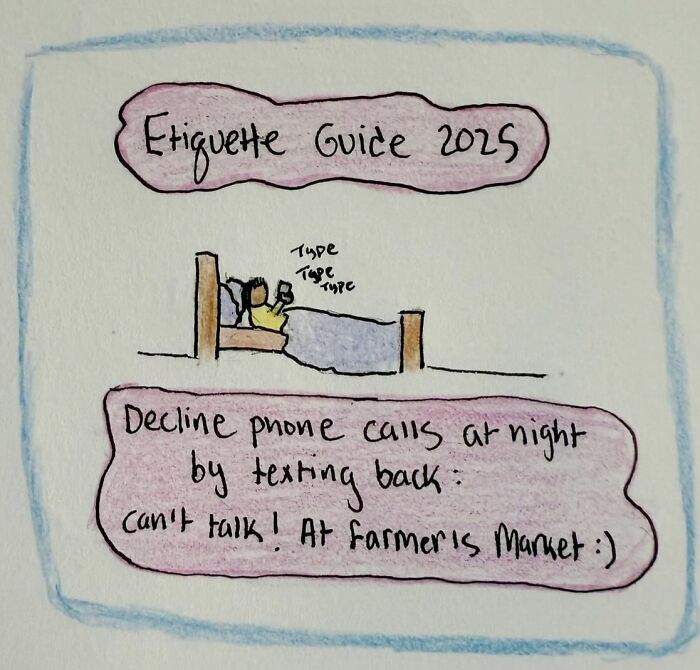 Etiquette Guide 2025
Type
Type
Type
Decline phone calls at night
by texting back:
can't talk! At farmer's Market :)